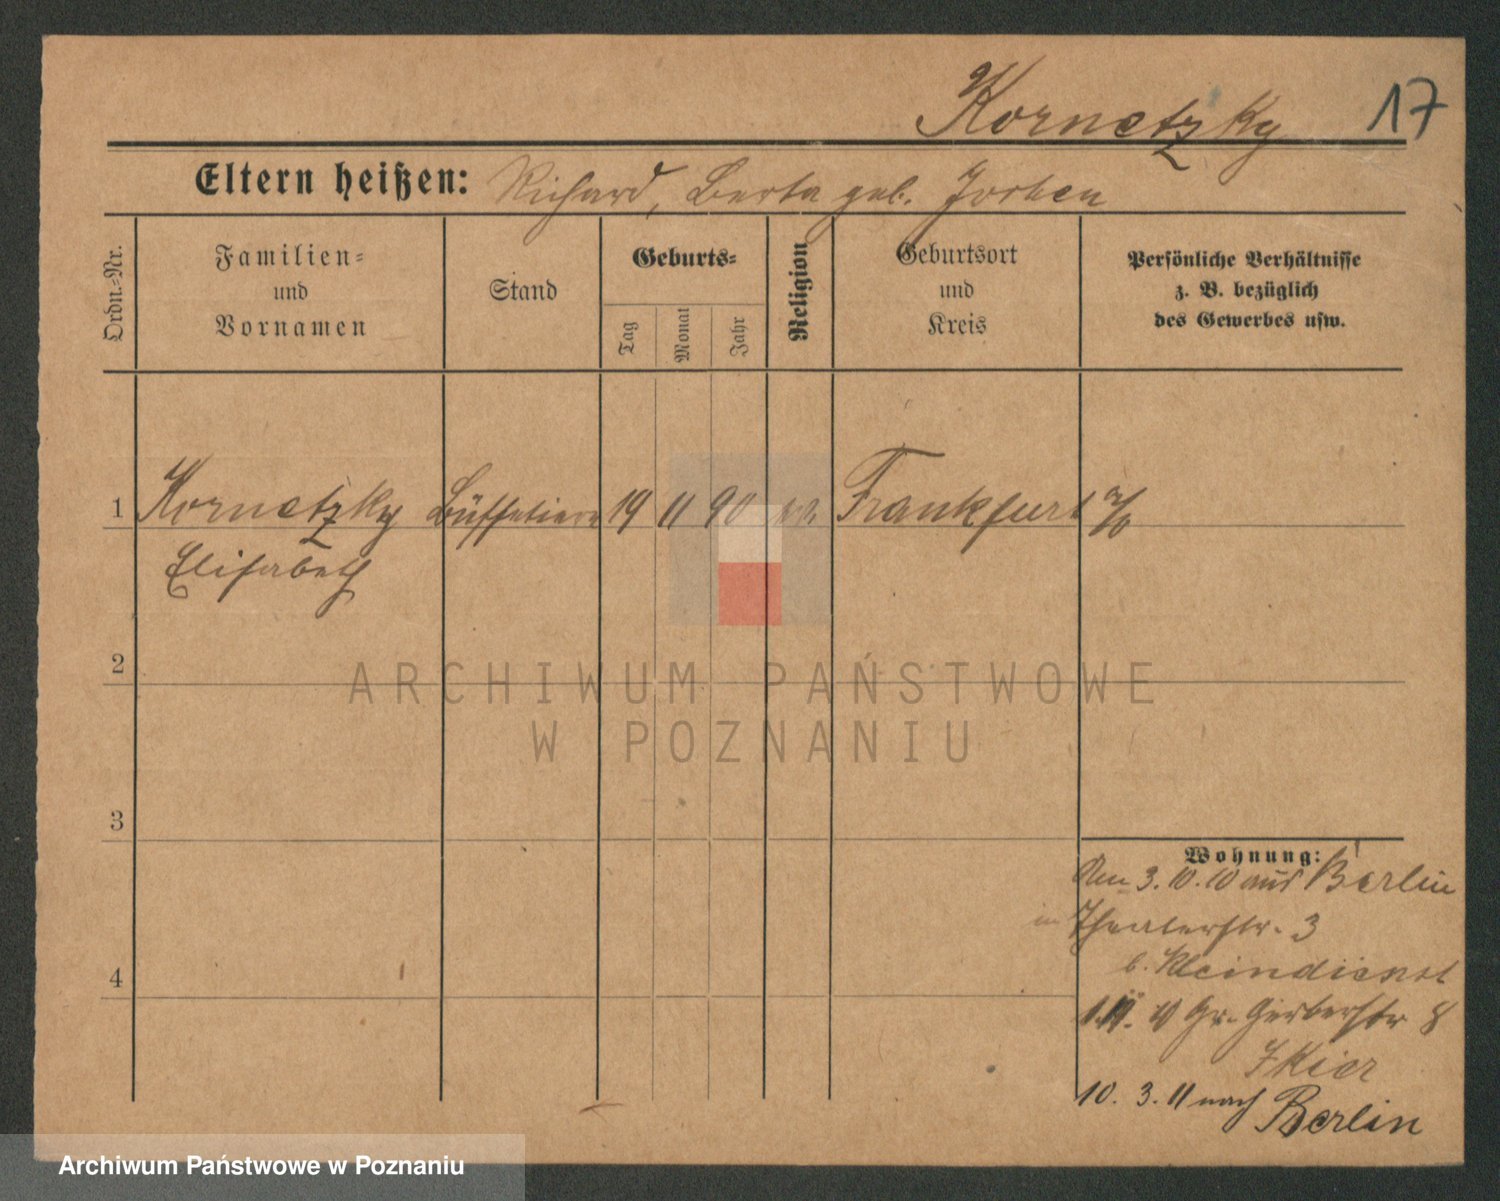 Kornetzky 17
Eltern heißen: Richard, Berta geb.
Ordn.-Nr.
Familien-
und
Vornamen
Stand
Geburts-
Tag
Monat
Jahr
Religion
Geburtsort
und
Kreis
Persönliche Verhältnisse
z. B. bezüglich
des Gewerbes usw.
1 Kornetzky Büffetiere 19 11 90 Frankfurt a/O
Elisabeth
2
ARCHIWUM PAŃSTWOWE
W POZNANIU
3
Wohnung:
Den 3. 10. 10 aus Berlin
in Theaterstr. 3
b. Kleindienst
4
10 Gr. Gerberstr 8
10. 3. 11 nach Berlin
Archiwum Państwowe w Poznaniu